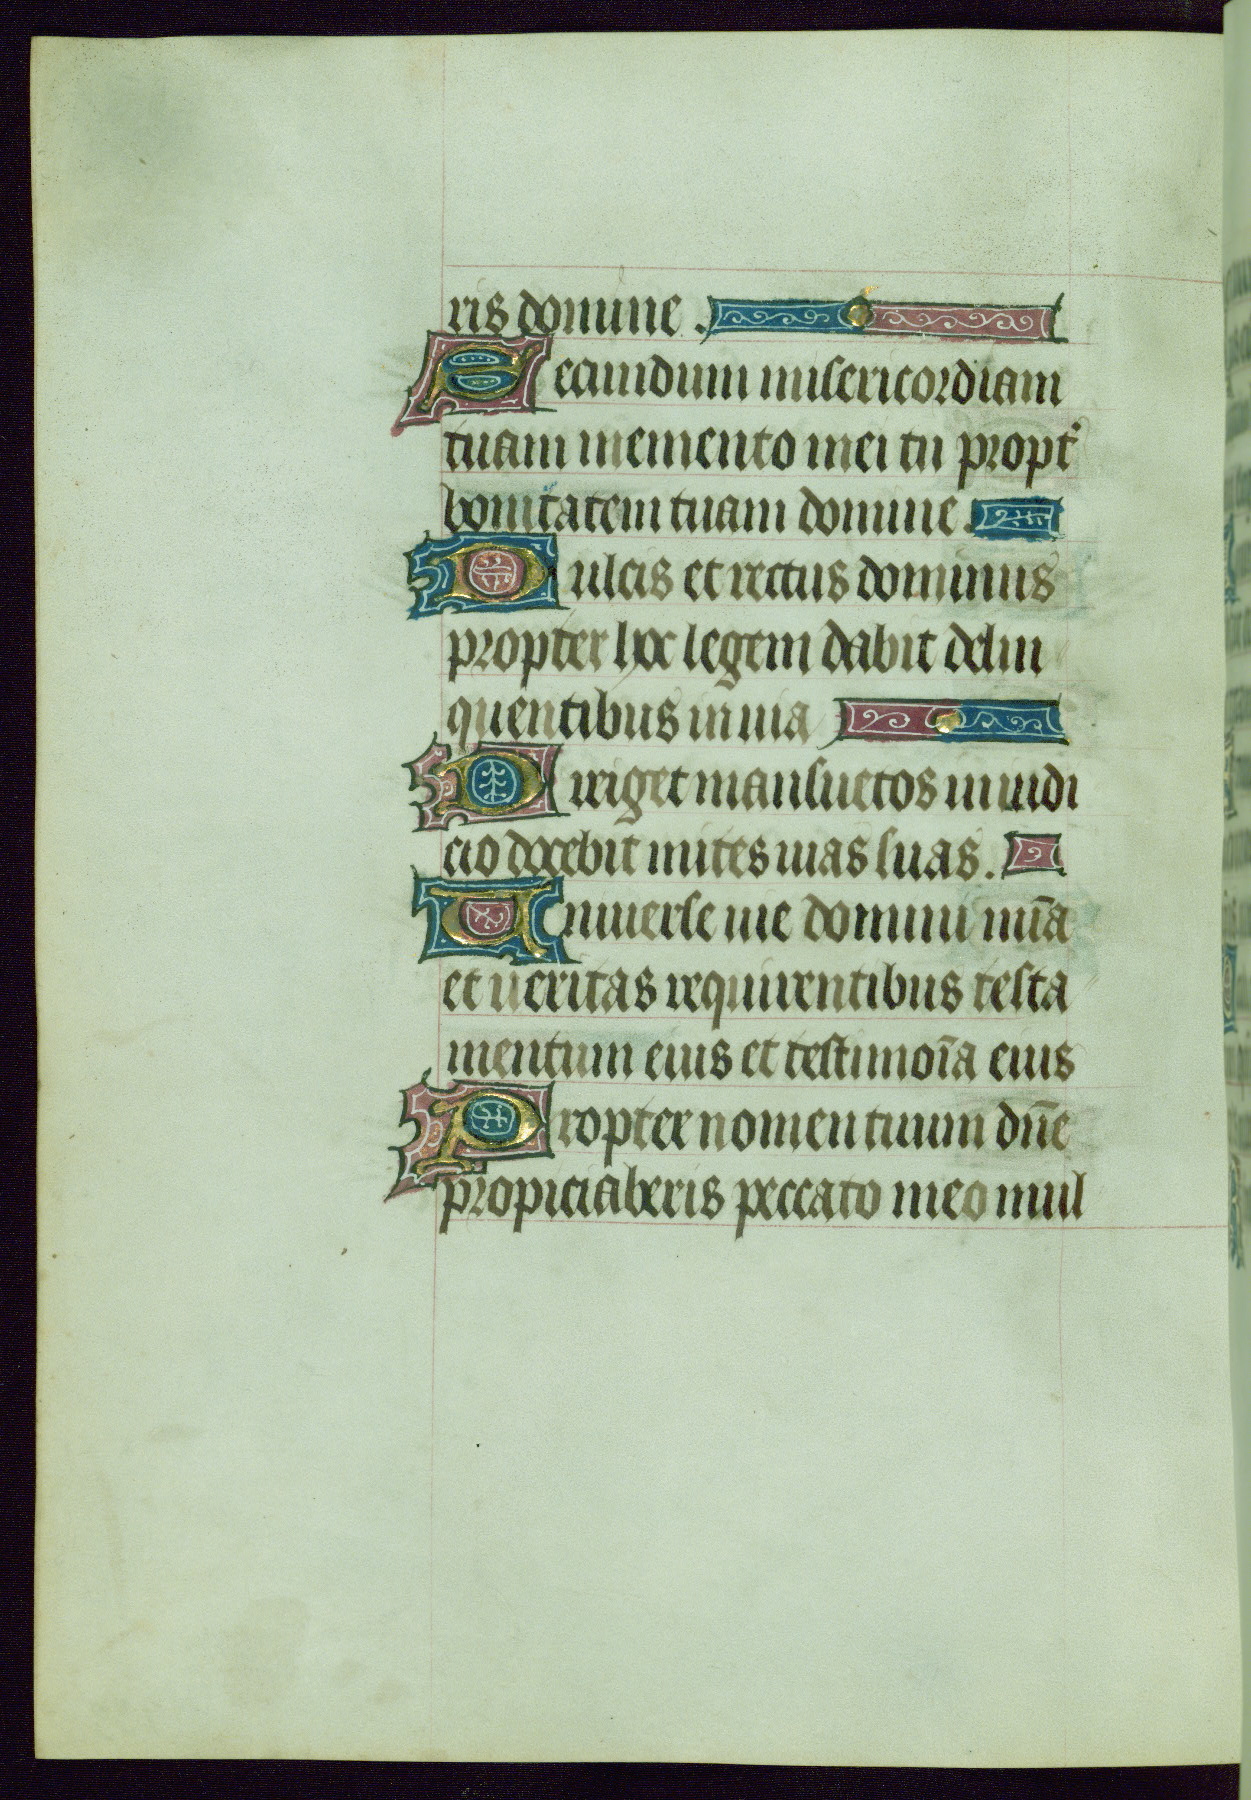 ris domine.
Secundum misericordiam
tuam memento mei tu propt᷑
bonitatem tuam domine.
Dulcis et rectus dominus
propter hoc legem dabit delin
quentibus in uia
Diriget mansuetos in iudi
cio docebit mites uias suas.
Uniuerse uie domini mīa
et ueritas requirentibus testa
mentum eius et testimoīa eius
Propter nomen tuum dn̄e
propiciaberis peccato meo mul